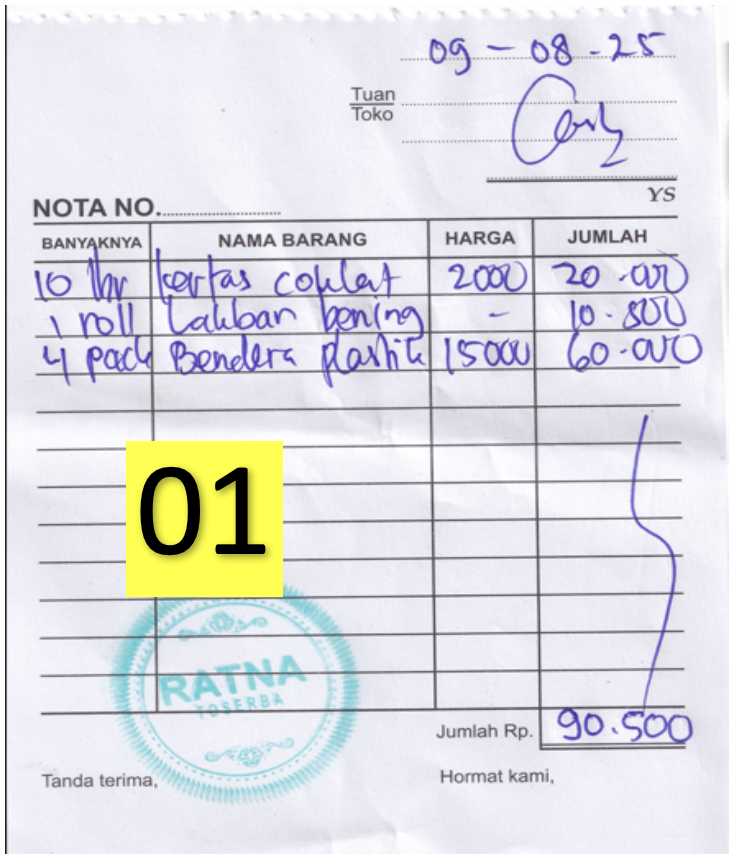 09 - 08 - 25
Tuan
Toko
Cash
YS
NOTA NO.
BANYAKNYA NAMA BARANG HARGA JUMLAH
10 lbr kertas coklat 2000 20.000
1 roll Lakban bening - 10.500
4 pack Bendera plastik 15000 60.000
01
RATNA
TOSERBA
Jumlah Rp. 90.500
Tanda terima, Hormat kami,